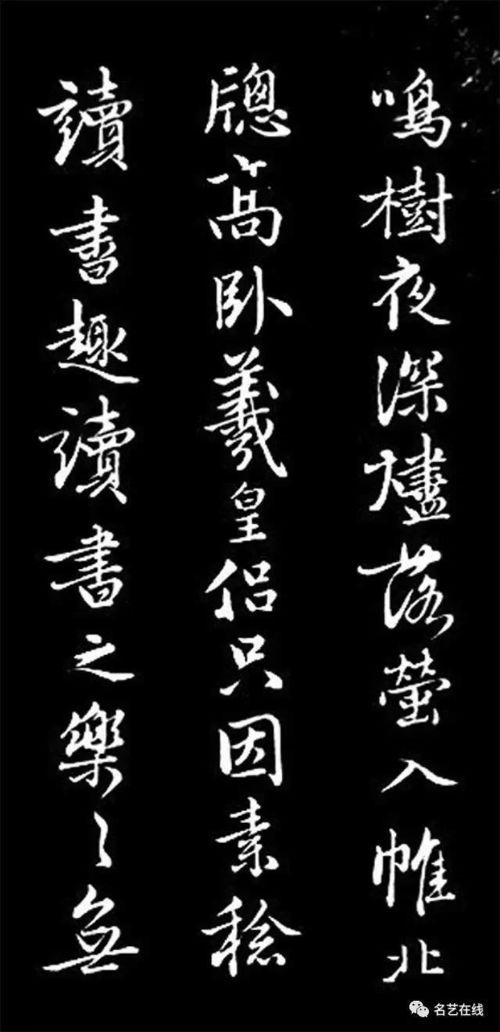 鳴樹夜深燼落螢入帷北
牕高卧羲皇侣只因素稔
讀書趣讀書之樂々無
名艺在线